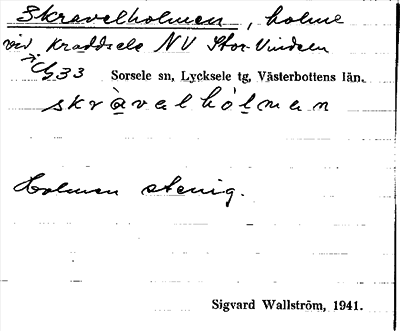 Skravelholmen, holme
vid Kraddsele NV Stor-Vindeln
33 Sorsele sn, Lycksele tg, Västerbottens län.
skràvelhólmen
Holmen stenig.
Sigvard Wallström, 1941.